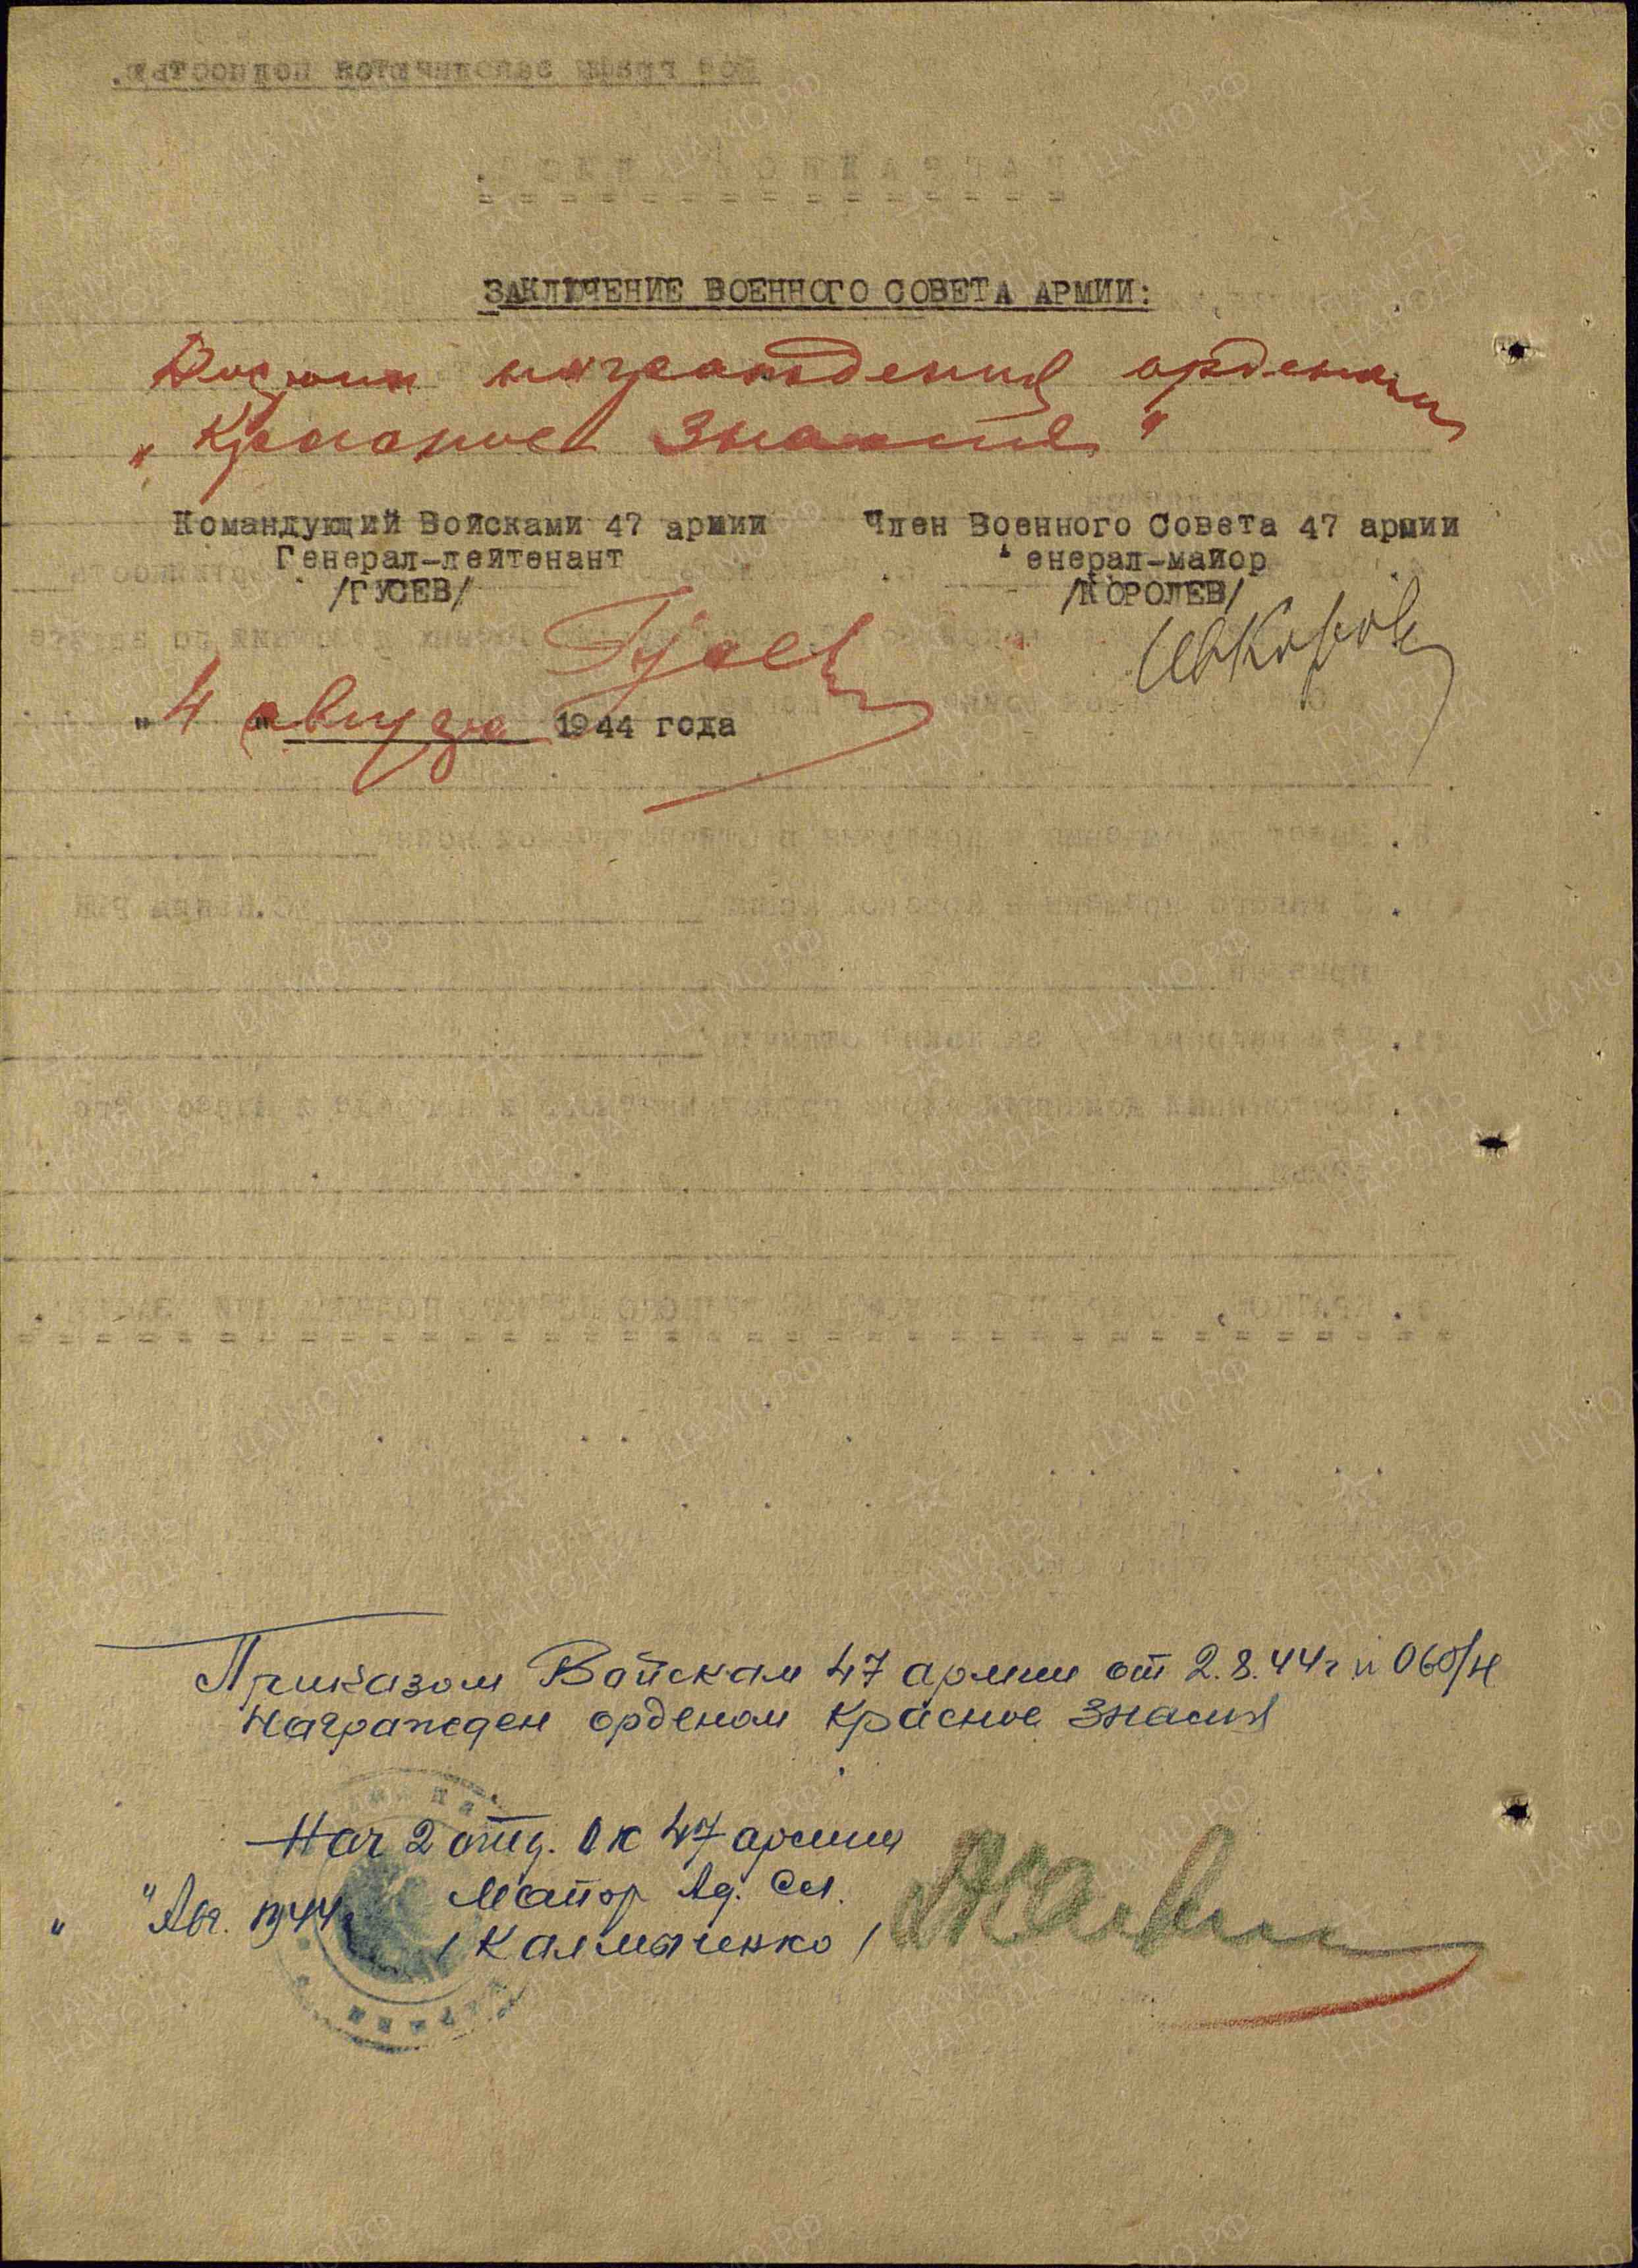 ЗАКЛЮЧЕНИЕ ВОЕННОГО СОВЕТА АРМИИ:
Достоин награждения орденом
"Красное Знамя"
Командующий Войсками 47 армии
Генерал-лейтенант
/ГУСЕВ/
Член Военного Совета 47 армии
енерал-майор
/КОРОЛЕВ/
Гусев
Королев
"4" августа 1944 года
Приказом Войскам 47 армии от 2.8.44г н 060/н
Награжден орденом Красное Знамя
Нач 2 отд. ОК 47 армии
Майор Ад. Сл.
" " Авг. 1944г
/Калмыченко/